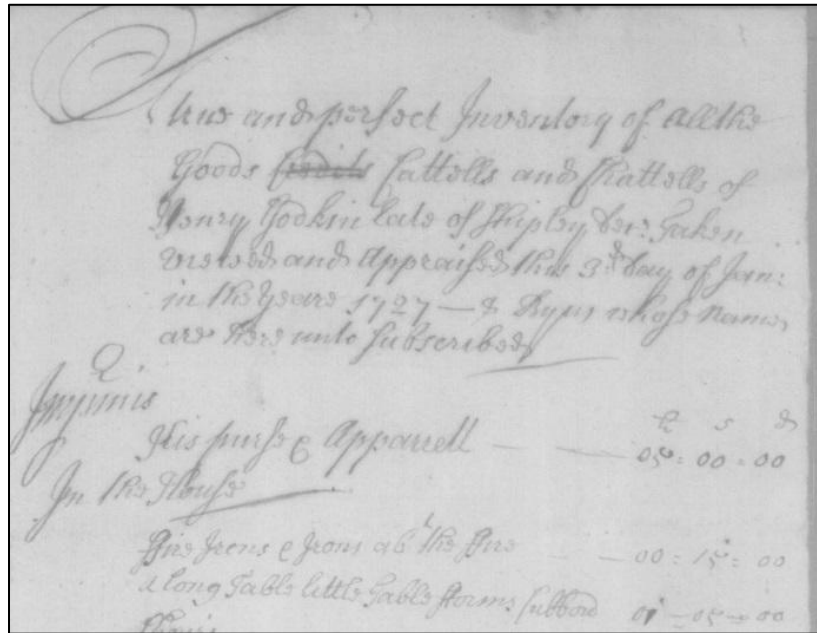 A true and perfect Inventory of all the
Goods Credits Cattells and Chattells of
Henry Hodkin late of Shipley Taken
viewed and Appraised this 3d day of Jan:
in the Yeare 1727 — & By us whose names
are here unto subscribed
Imprimis
li s d
His purse & Apparrell — — 05 = 00 = 00
In the House
ffire Irons & Irons abt the ffire — 00 = 15 = 00
A long Table little Table fforms Cubbord 01 — 05 — 00
Chairs